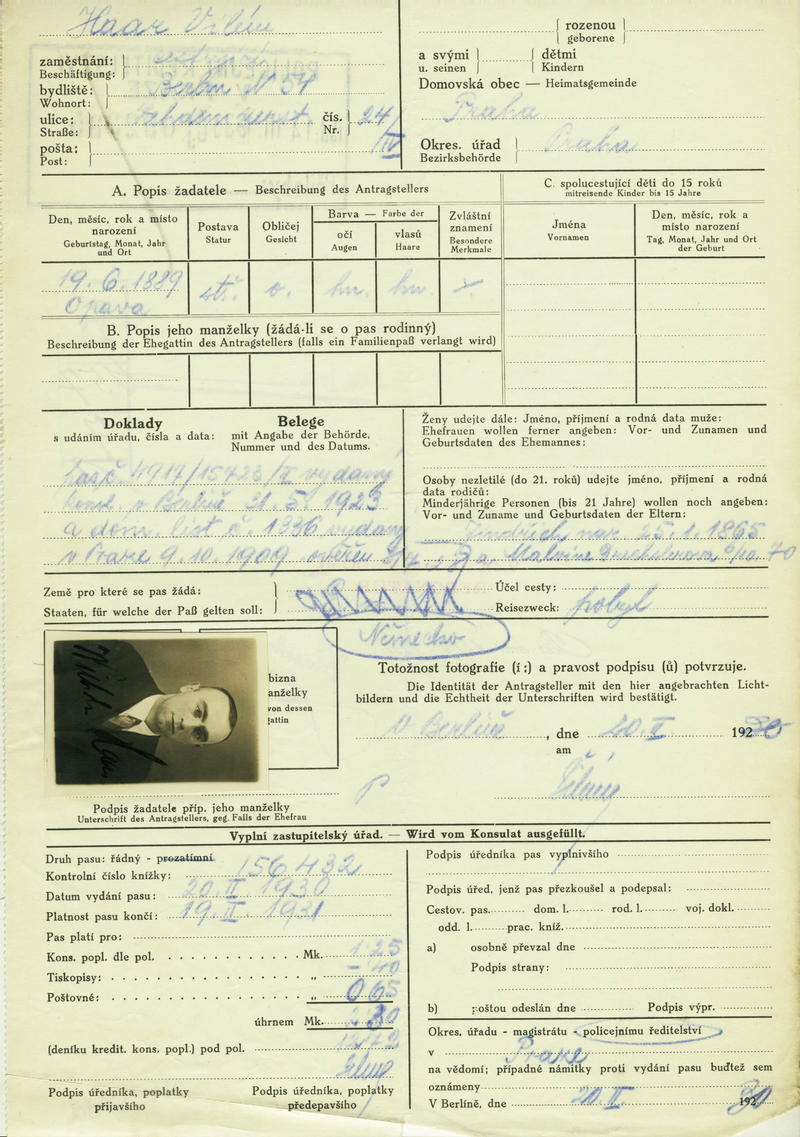 Haar Vilém
zaměstnání:
Beschäftigung:
bydliště: Berlin N 54
Wohnort:
ulice: čís. 24/IV
Straße: Nr.
pošta:
Post:
rozenou
geborene
a svými dětmi
u. seinen Kindern
Domovská obec — Heimatsgemeinde
Praha
Okres. úřad Praha
Bezirksbehörde
A. Popis žadatele — Beschreibung des Antragstellers
Den, měsíc, rok a místo narození
Geburtstag, Monat, Jahr und Ort
Postava
Statur
Obličej
Gesicht
Barva — Farbe der
očí
Augen
vlasů
Haare
Zvláštní znamení
Besondere Merkmale
19. 6. 1889 stř. o. hn. hn.
Opava
B. Popis jeho manželky (žádá-li se o pas rodinný)
Beschreibung der Ehegattin des Antragstellers (falls ein Familienpaß verlangt wird)
C. spolucestující děti do 15 roků
mitreisende Kinder bis 15 Jahre
Jména
Vornamen
Den, měsíc, rok a místo narození
Tag, Monat, Jahr und Ort der Geburt
Doklady
s udáním úřadu, čísla a data:
Belege
mit Angabe der Behörde, Nummer und des Datums.
vydaný
v Berlíně 31. 5. 1923
a dom. list č. 1336 vydaný
v Praze 9. 10. 1909 ověřen
Ženy udejte dále: Jméno, příjmení a rodná data muže:
Ehefrauen wollen ferner angeben: Vor- und Zunamen und
Geburtsdaten des Ehemannes:
Osoby nezletilé (do 21. roků) udejte jméno, příjmení a rodná
data rodičů:
Minderjährige Personen (bis 21 Jahre) wollen noch angeben:
Vor- und Zuname und Geburtsdaten der Eltern:
Jindřich, nar. 25. 1. 1865
Malvine
Země pro které se pas žádá:
Staaten, für welche der Paß gelten soll:
Německo
Účel cesty:
Reisezweck: pobyt
bizna
anželky
von dessen
attin
Totožnost fotografie (í:) a pravost podpisu (ů) potvrzuje.
Die Identität der Antragsteller mit den hier angebrachten Licht-
bildern und die Echtheit der Unterschriften wird bestätigt.
V Berlíně, dne 20. II. 1930
am
Podpis žadatele příp. jeho manželky
Unterschrift des Antragstellers, geg. Falls der Ehefrau
Vyplní zastupitelský úřad. — Wird vom Konsulat ausgefüllt.
Druh pasu: řádný - prozatímní
Kontrolní číslo knížky: 156432
Datum vydání pasu: 20. II. 1930
Platnost pasu končí: 19. II. 1931
Pas platí pro:
Kons. popl. dle pol. Mk. 1 25
Tiskopisy: „ - 40
Poštovné: „ 0 65
úhrnem Mk. 2 30
(deníku kredit. kons. popl.) pod pol.
Podpis úředníka, poplatky
přijavšího
Podpis úředníka, poplatky
předepavšího
Podpis úředníka pas vyplnivšího
Podpis úřed. jenž pas přezkoušel a podepsal:
Cestov. pas. dom. l. rod. l. voj. dokl.
odd. l. prac. kníž.
a) osobně převzal dne
Podpis strany:
b) poštou odeslán dne Podpis výpr.
Okres. úřadu - magistrátu - policejnímu ředitelství
v Praze
na vědomí; případné námitky proti vydání pasu buďtež sem
oznámeny
V Berlíně, dne 20. II. 1930